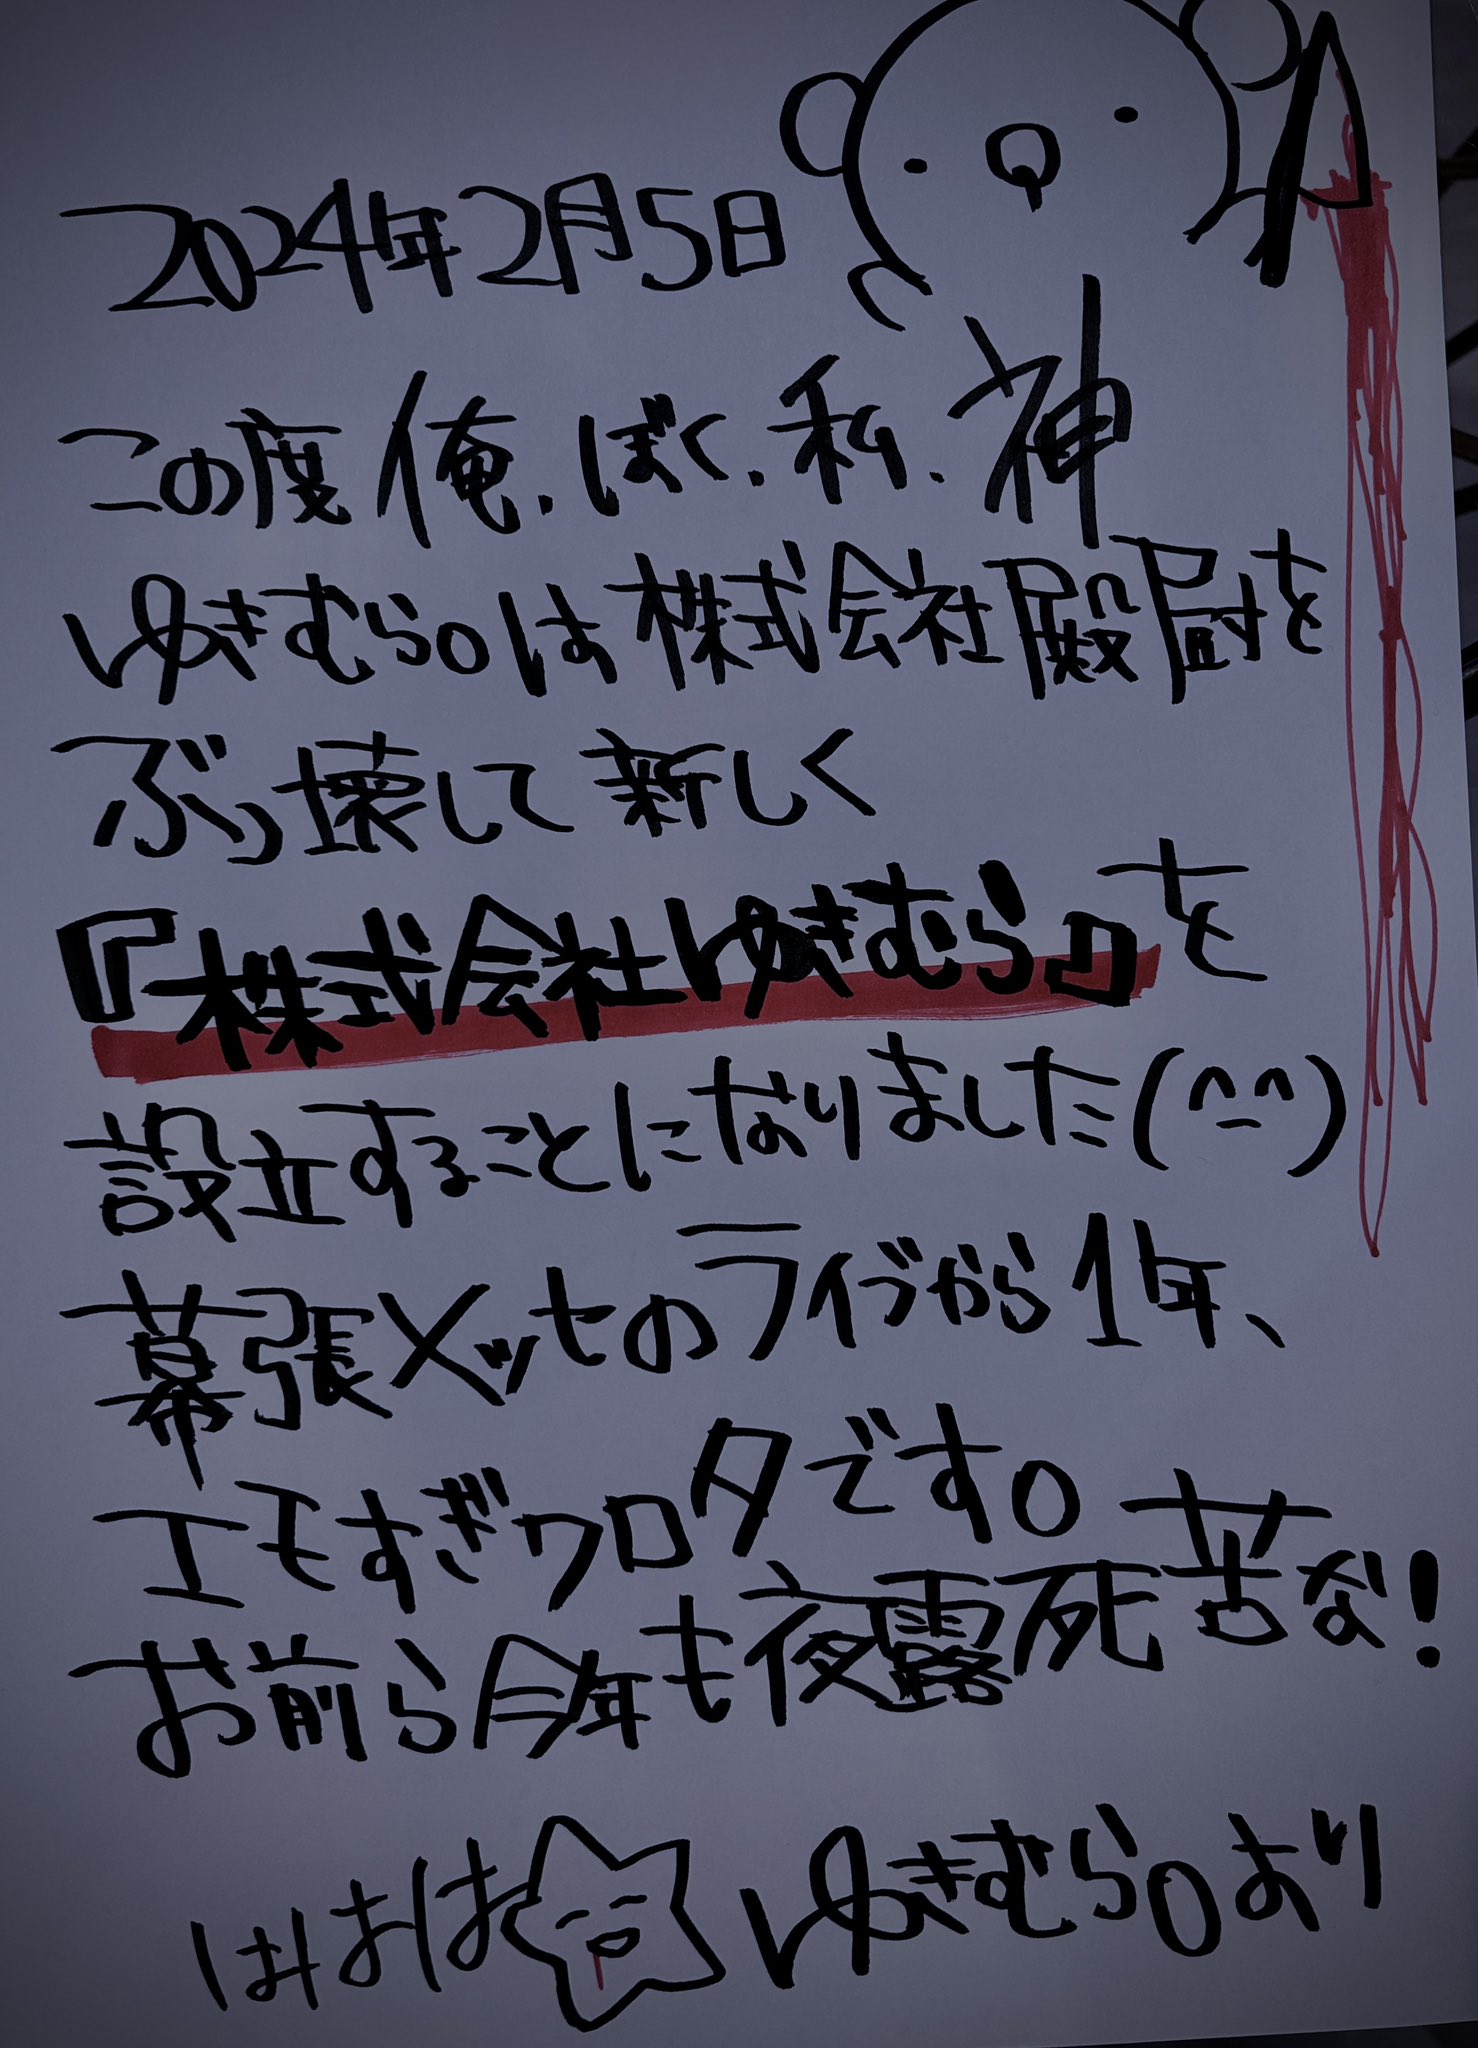 2024年2月5日
この度 俺.ぼく.私.神
ゆきむら。は株式会社殿尉を
ぶっ壊して新しく
『株式会社ゆきむら』を
設立することになりました(^_^)
幕張メッセのライブから1年、
エモすぎワロタです。
お前ら今年も夜露死苦な!
ゆきむら。より